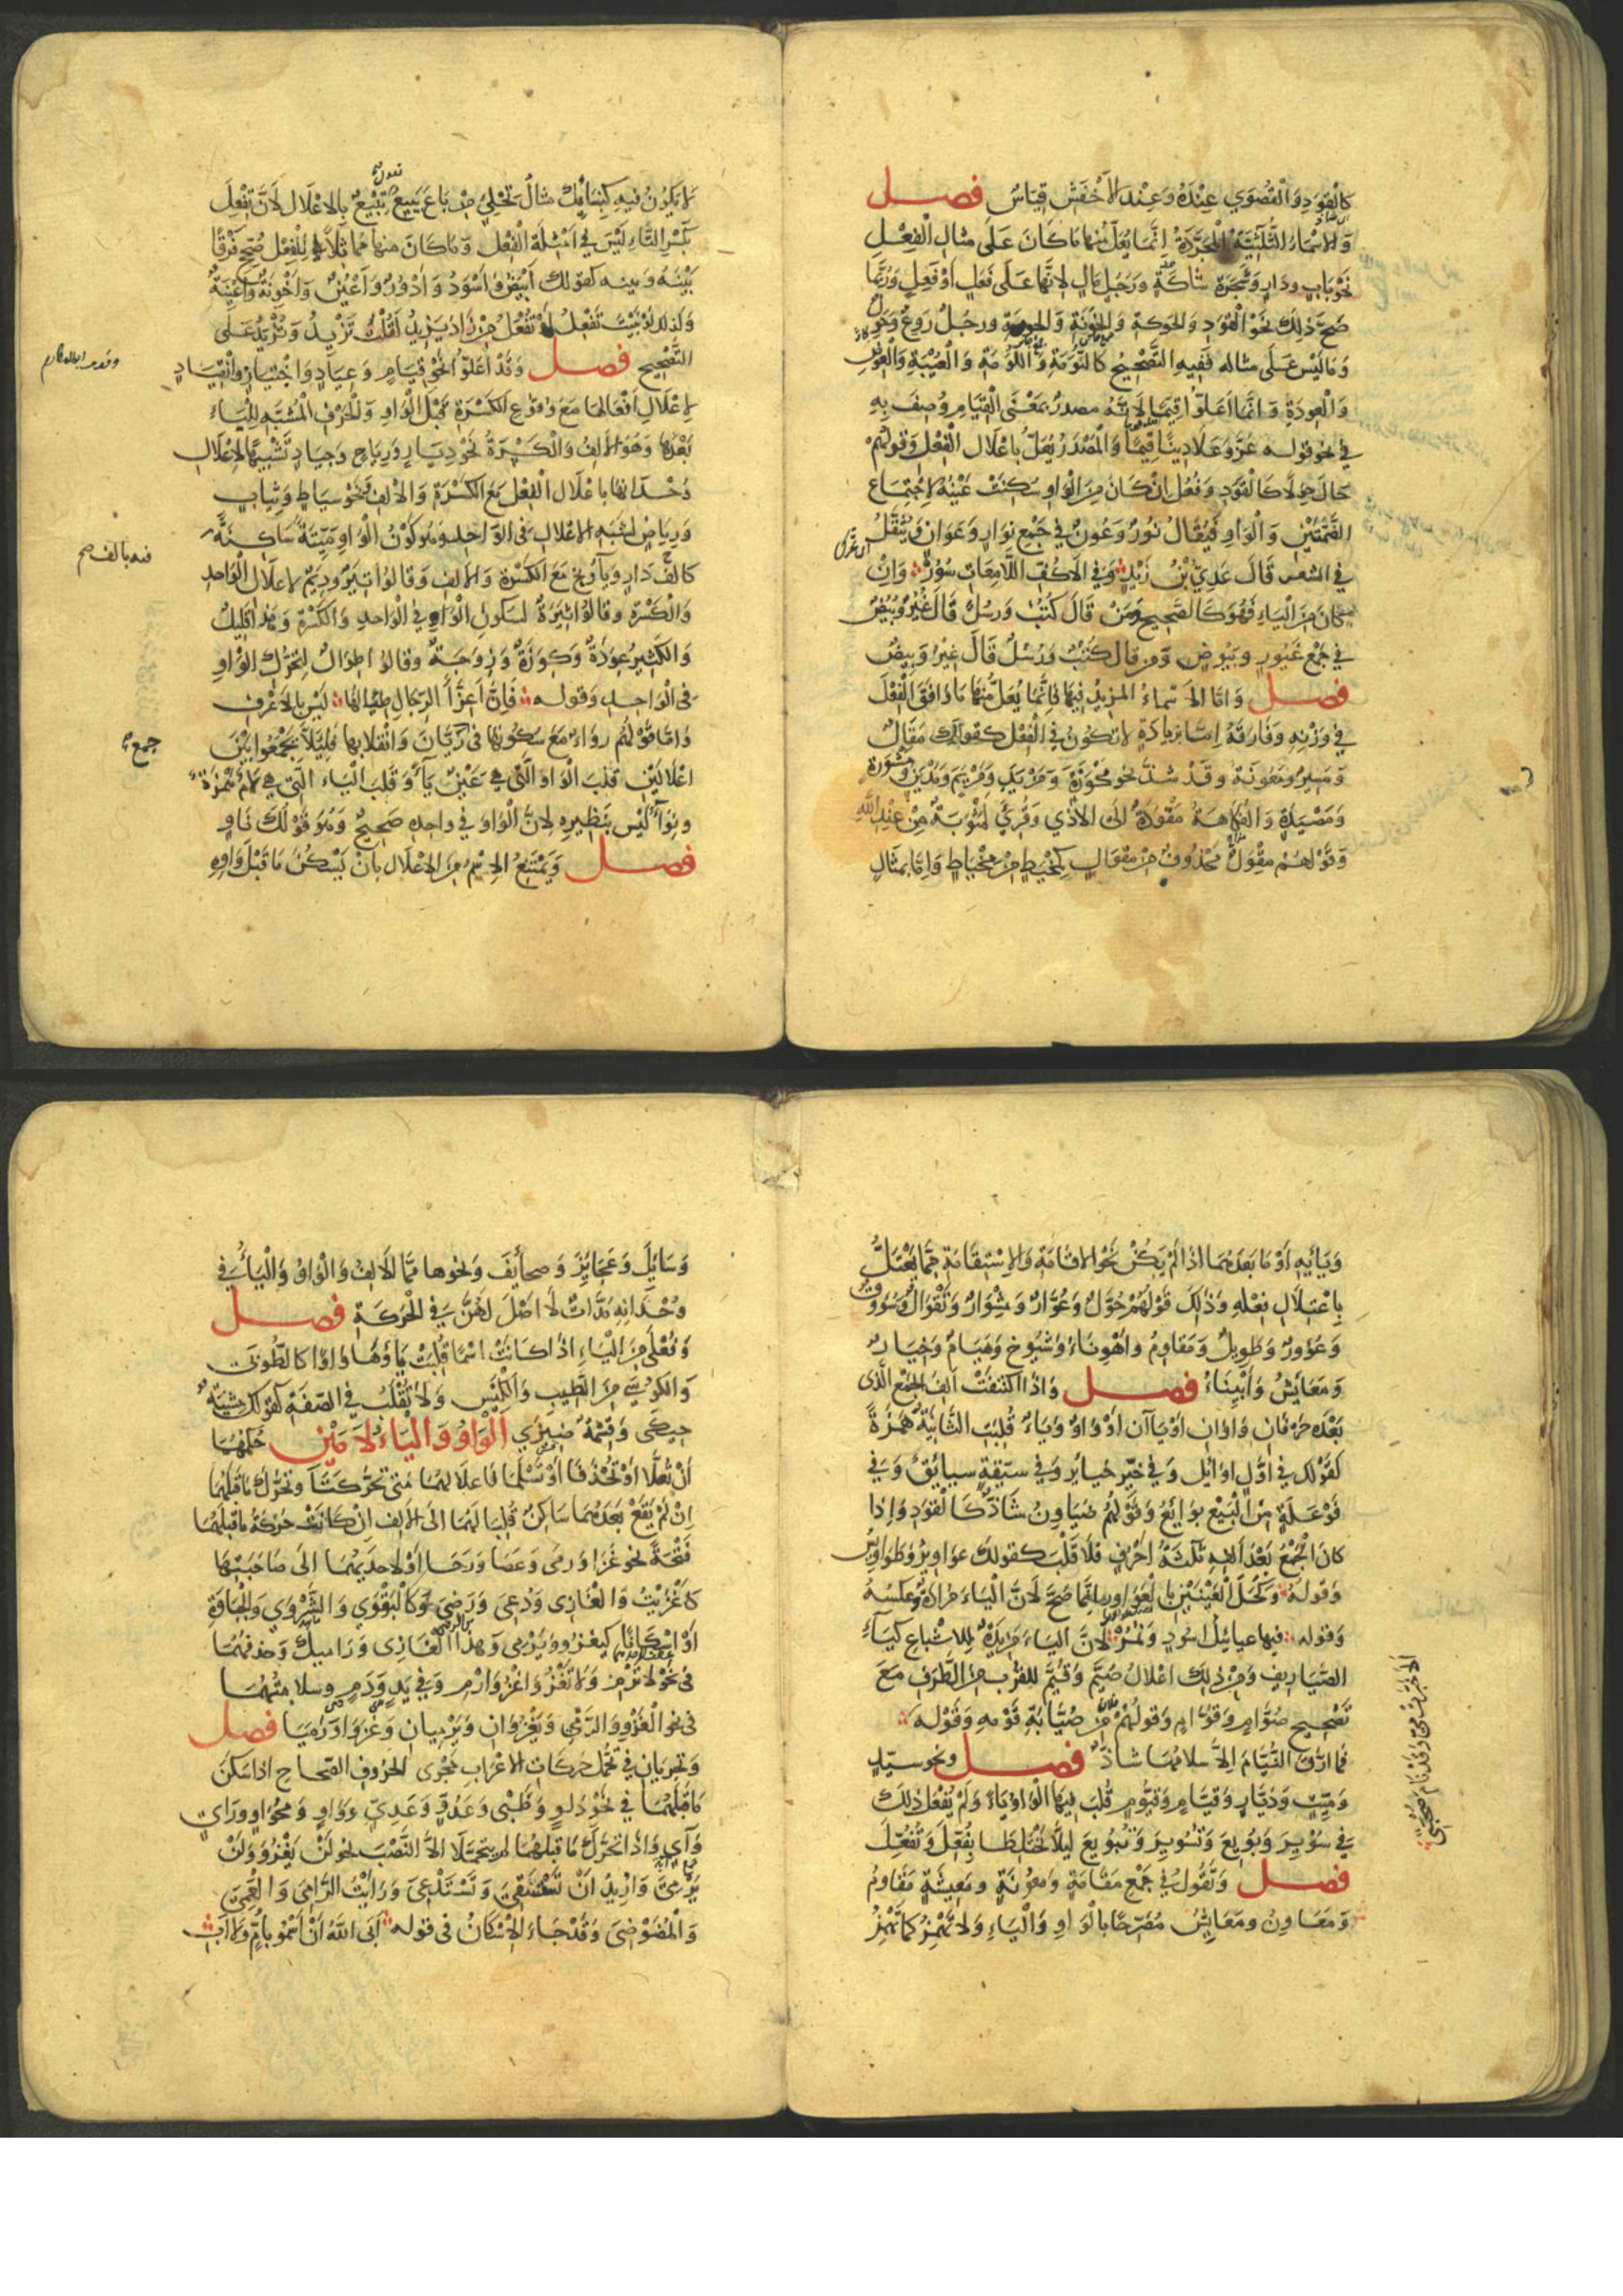 كالقود والقصوى عنده وعند الاخفش قياس فصل
والاسماء الثلاثية المجردة انما يعل منها ما كان على مثال الفعل
نحو باب ودار وشجرة شاكة ورجل مال لانها على فعل او فعل وربما
صح ذلك نحو القود والحوكة والخونة والجورة ورجل روع وحول
وما ليس على مثاله ففيه التصحيح كالنومة واللومة والعيبة والعوض
والعودة وانما اعلوا قيما لانه مصدر بمعنى القيام وصف به
في نحو قوله عز وعلا دينا قيما والمصدر يعل باعلال الفعل وقولهم
حال حولا كالقود وفعل ان كان من الواو سكنت عينه لاجتماع
الضمتين والواو فيقال نور وعون في جمع نوار وعوان ويثقل
في الشعر قال عدي بن زيد وفي الاكف اللامعات سور وان
كان من الياء فهو كالصحيح ومن قال كتب ورسل قال غير وبيض
في جمع غيور وبيوض ومن قال كتب ورسل قال غير وبيض
فصل واما الاسماء المزيد فيها فانما يعل منها ما وافق الفعل
في وزنه وفارقه اما بزيادة لا تكون في الفعل كقولك مقال
ومسير ومعونة وقد شذ نحو مكوزة ومزيد ومريم ومدين ومشورة
ومصيدة والفكاهة مقودة الى الاذى وقرئ لمثوبة من عند الله
وقولهم مقول محذوف من مقوال كمخيط من مخياط واما بمثال
لا يكون فيه كبنائك مثال تحلئ من باع يبيع تقول تبيع بالاعلال لان تفعل
بكسر التاء ليس في امثلة الفعل وما كان منها مماثلا للفعل صحح فرقا
بينه وبينه كقولك ابيض واسود وادور واعين واخونة واعينة
وكذلك لو بنيت تفعل او تفعل من زاد يزيد لقلت تزيد وتزيد على
التصحيح فصل وقد اعلوا نحو قيام وعياد واختيار وانقياد
لاعلال افعالها مع وقوع الكسرة قبل الواو والحرف المشبه للياء
بعدها وهو الالف والكسرة نحو ديار ورياح وجياد تشبيها لاعلال
وحدانها باعلال الفعل مع الكسرة والالف فنحو سياط وثياب
ورياض لشبه الاعلال في الواحد وهو كون الواو ميتة ساكنة
فيه بالف صح
كالف دار وياء ريح مع الكسرة والالف وقالوا تير وديم لاعلال الواحد
والكسرة وقالوا ثيرة لسكون الواو في الواحد والكسرة وهذا قليل
والكثير عودة وكوزة وزوجة وقالوا طوال لتحرك الواو
في الواحد وقوله فان اعزاء الرجال طيالها ليس بالاعرف
واما قولهم رواء مع سكونها في ريان وانقلابها فليلا يجمعوا بين
جمع
اعلالين قلب الواو التي هي عين ياء وقلب الياء التي هي لام همزة
ونواء ليس بنظيره لان الواو في واحده صحيح وهو قولك ناو
فصل ويمتنع الاسم من الاعلال بان يسكن ما قبل واوه
ويائه او ما بعدهما اذا لم يكن نحو الاقامة والاستقامة مما يعتل
باعتلال فعله وذلك قولهم حول وعوار ومشوار وتقوال وسووق
وغوور وطويل ومقاوم واهوناء وشيوخ وهيام وخيار
ومعايش وابيناء فصل واذا اكتنفت الف الجمع الذي
بعده حرفان واوان او يا آن او واو وياء قلبت الثانية همزة
كقولك في اول اوائل وفي خير خيائر وفي سيقة سيائق وفي
فوعلة من البيع بوائع وقولهم ضياون شاذ كالقود واذا
كان الجمع بعد الفه ثلثة احرف فلا قلب كقولك عواوير وطواويس
وقوله وكحل العينين بالعواور انما صح لان الياء مرادة وعكسه
وقوله فيها عيائيل اسود ونمر لان الياء مزيدة للاشباع كياء
الصياريف ومن ذلك اعلال صيم وقيم للقرب من الطرف مع
تصحيح صوام وقوام وقولهم فلان من صيابة قومه وقوله
الا طرقتنا مية ابنة منذر
فما ارق النيام الا سلامها شاذ فصل ونحو سيد
وميت وديار وقيام وقيوم قلب فيها الواو ياء ولم يفعل ذلك
في سوير وبويع وتسوير وتبويع ليلا تختلطا بفعل وتفعل
فصل وتقول في جمع مقامة ومعونة ومعيشة مقاوم
ومعاون ومعايش مصرحا بالواو والياء ولا تهمز كما تهمز
رسائل وعجائز وصحائف ونحوها مما الالف والواو والياء في
وحدانه مدات لا اصل لهن في الحركة فصل
وفعلى من الياء اذا كانت اسما قلبت ياؤها واوا كالطوبى
والكوسى من الطيب والكيس ولا تقلب في الصفة كقولك مشية
حيكى وقسمة ضيزى الواو والياء لامين حكمهما
ان تعلا او تحذفا او تسلما فاعلالهما متى تحركتا وتحرك ما قبلهما
ان لم يقع بعدهما ساكن قلبا لهما الى الالف ان كانت حركة ما قبلهما
فتحة نحو غزا ورمى وعصا ورحا او لاحديهما الى صاحبتها
كاغزيت والغازي ودعي ورضي وكالبقوى والشروى والجباوة
او اسكانا كيغزو ويرمي وهذا الغازي وراميك وحذفهما
في نحو لا ترم ولا تغز واغز وارم وفي يد ودم وسلامتهما
في نحو الغزو والرمي ويغزوان ويرميان وغزوا ورميا فصل
وتجريان في تحمل حركات الاعراب مجرى الحروف الصحاح اذا سكن
ما قبلهما في نحو دلو وظبي وعدو وعدي وواو ومحواو وراي
وآي واذا تحرك ما قبلهما لم يتحملا الا النصب نحو لن يغزو ولن
يرمي واريد ان تستقي وتستدعي ورايت الرامي والعمي
والمضوضي وقد جاء الاسكان في قوله ابى الله ان اسمو بام ولا اب